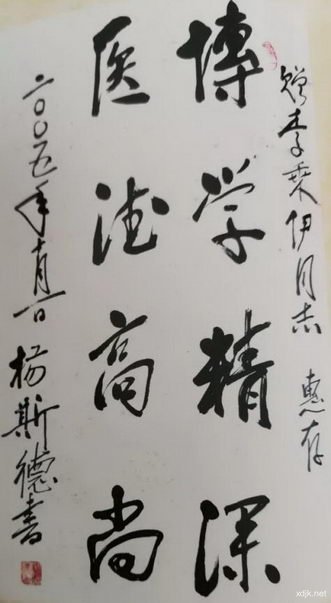 赠李乘伊同志 惠存
博学精深
医德高尚
二〇〇五年十月一日 杨斯德书
xdjk.net